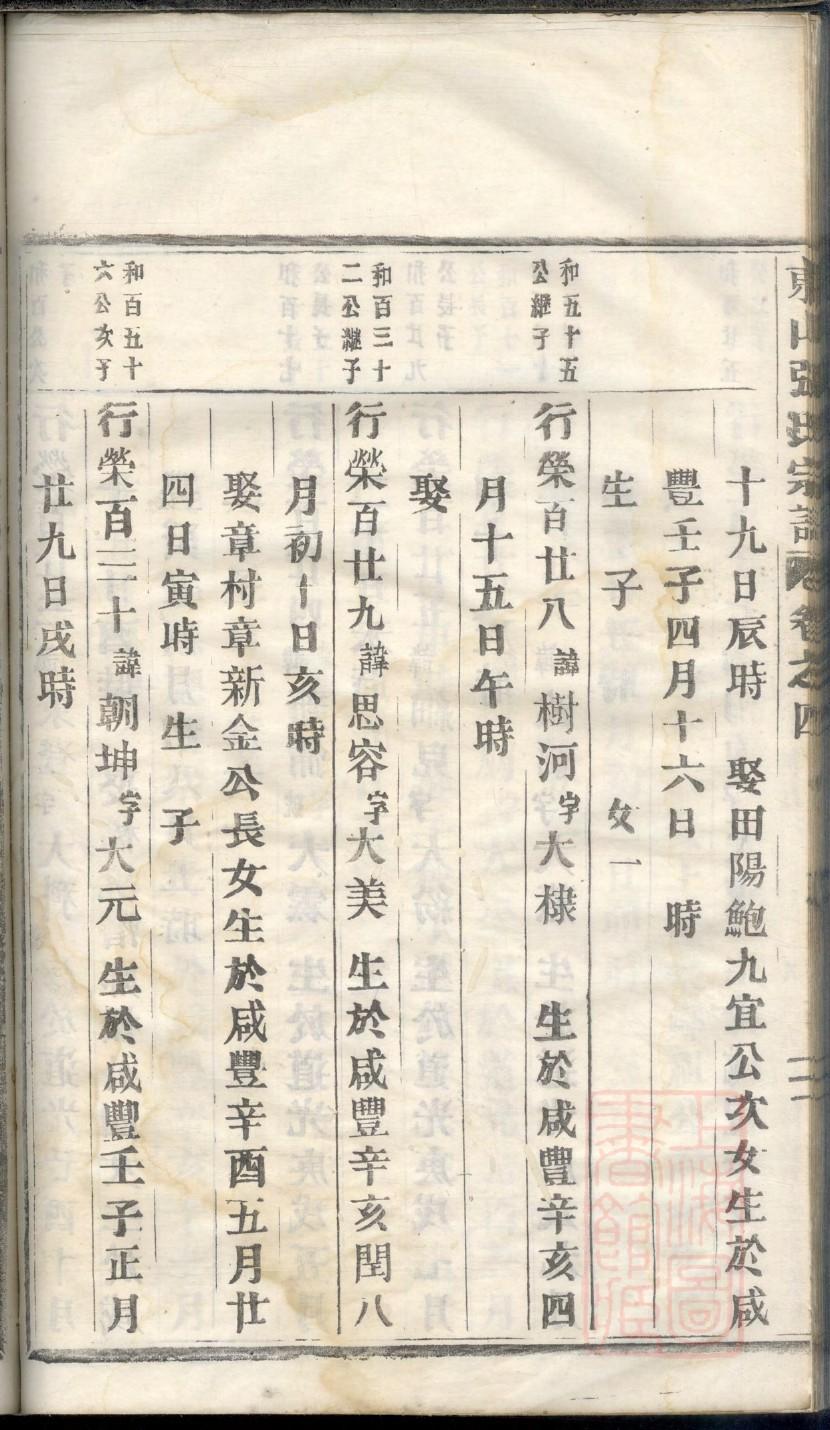 東山張氏宗譜 卷之四
十九日辰時 娶田陽鮑九宜公次女生於咸
豐壬子四月十六日 時
生 子 女一
和五十五
公繼子
行榮百廿八諱樹河字大棣 生於咸豐辛亥四
月十五日午時
娶
和百三十
二公繼子
行榮百廿九諱思容字大美 生於咸豐辛亥閏八
月初十日亥時
娶章村章新金公長女生於咸豐辛酉五月廿
四日寅時 生 子
和百五十
六公次子
行榮百三十諱朝坤字大元 生於咸豐壬子正月
廿九日戌時
上海圖
書館藏